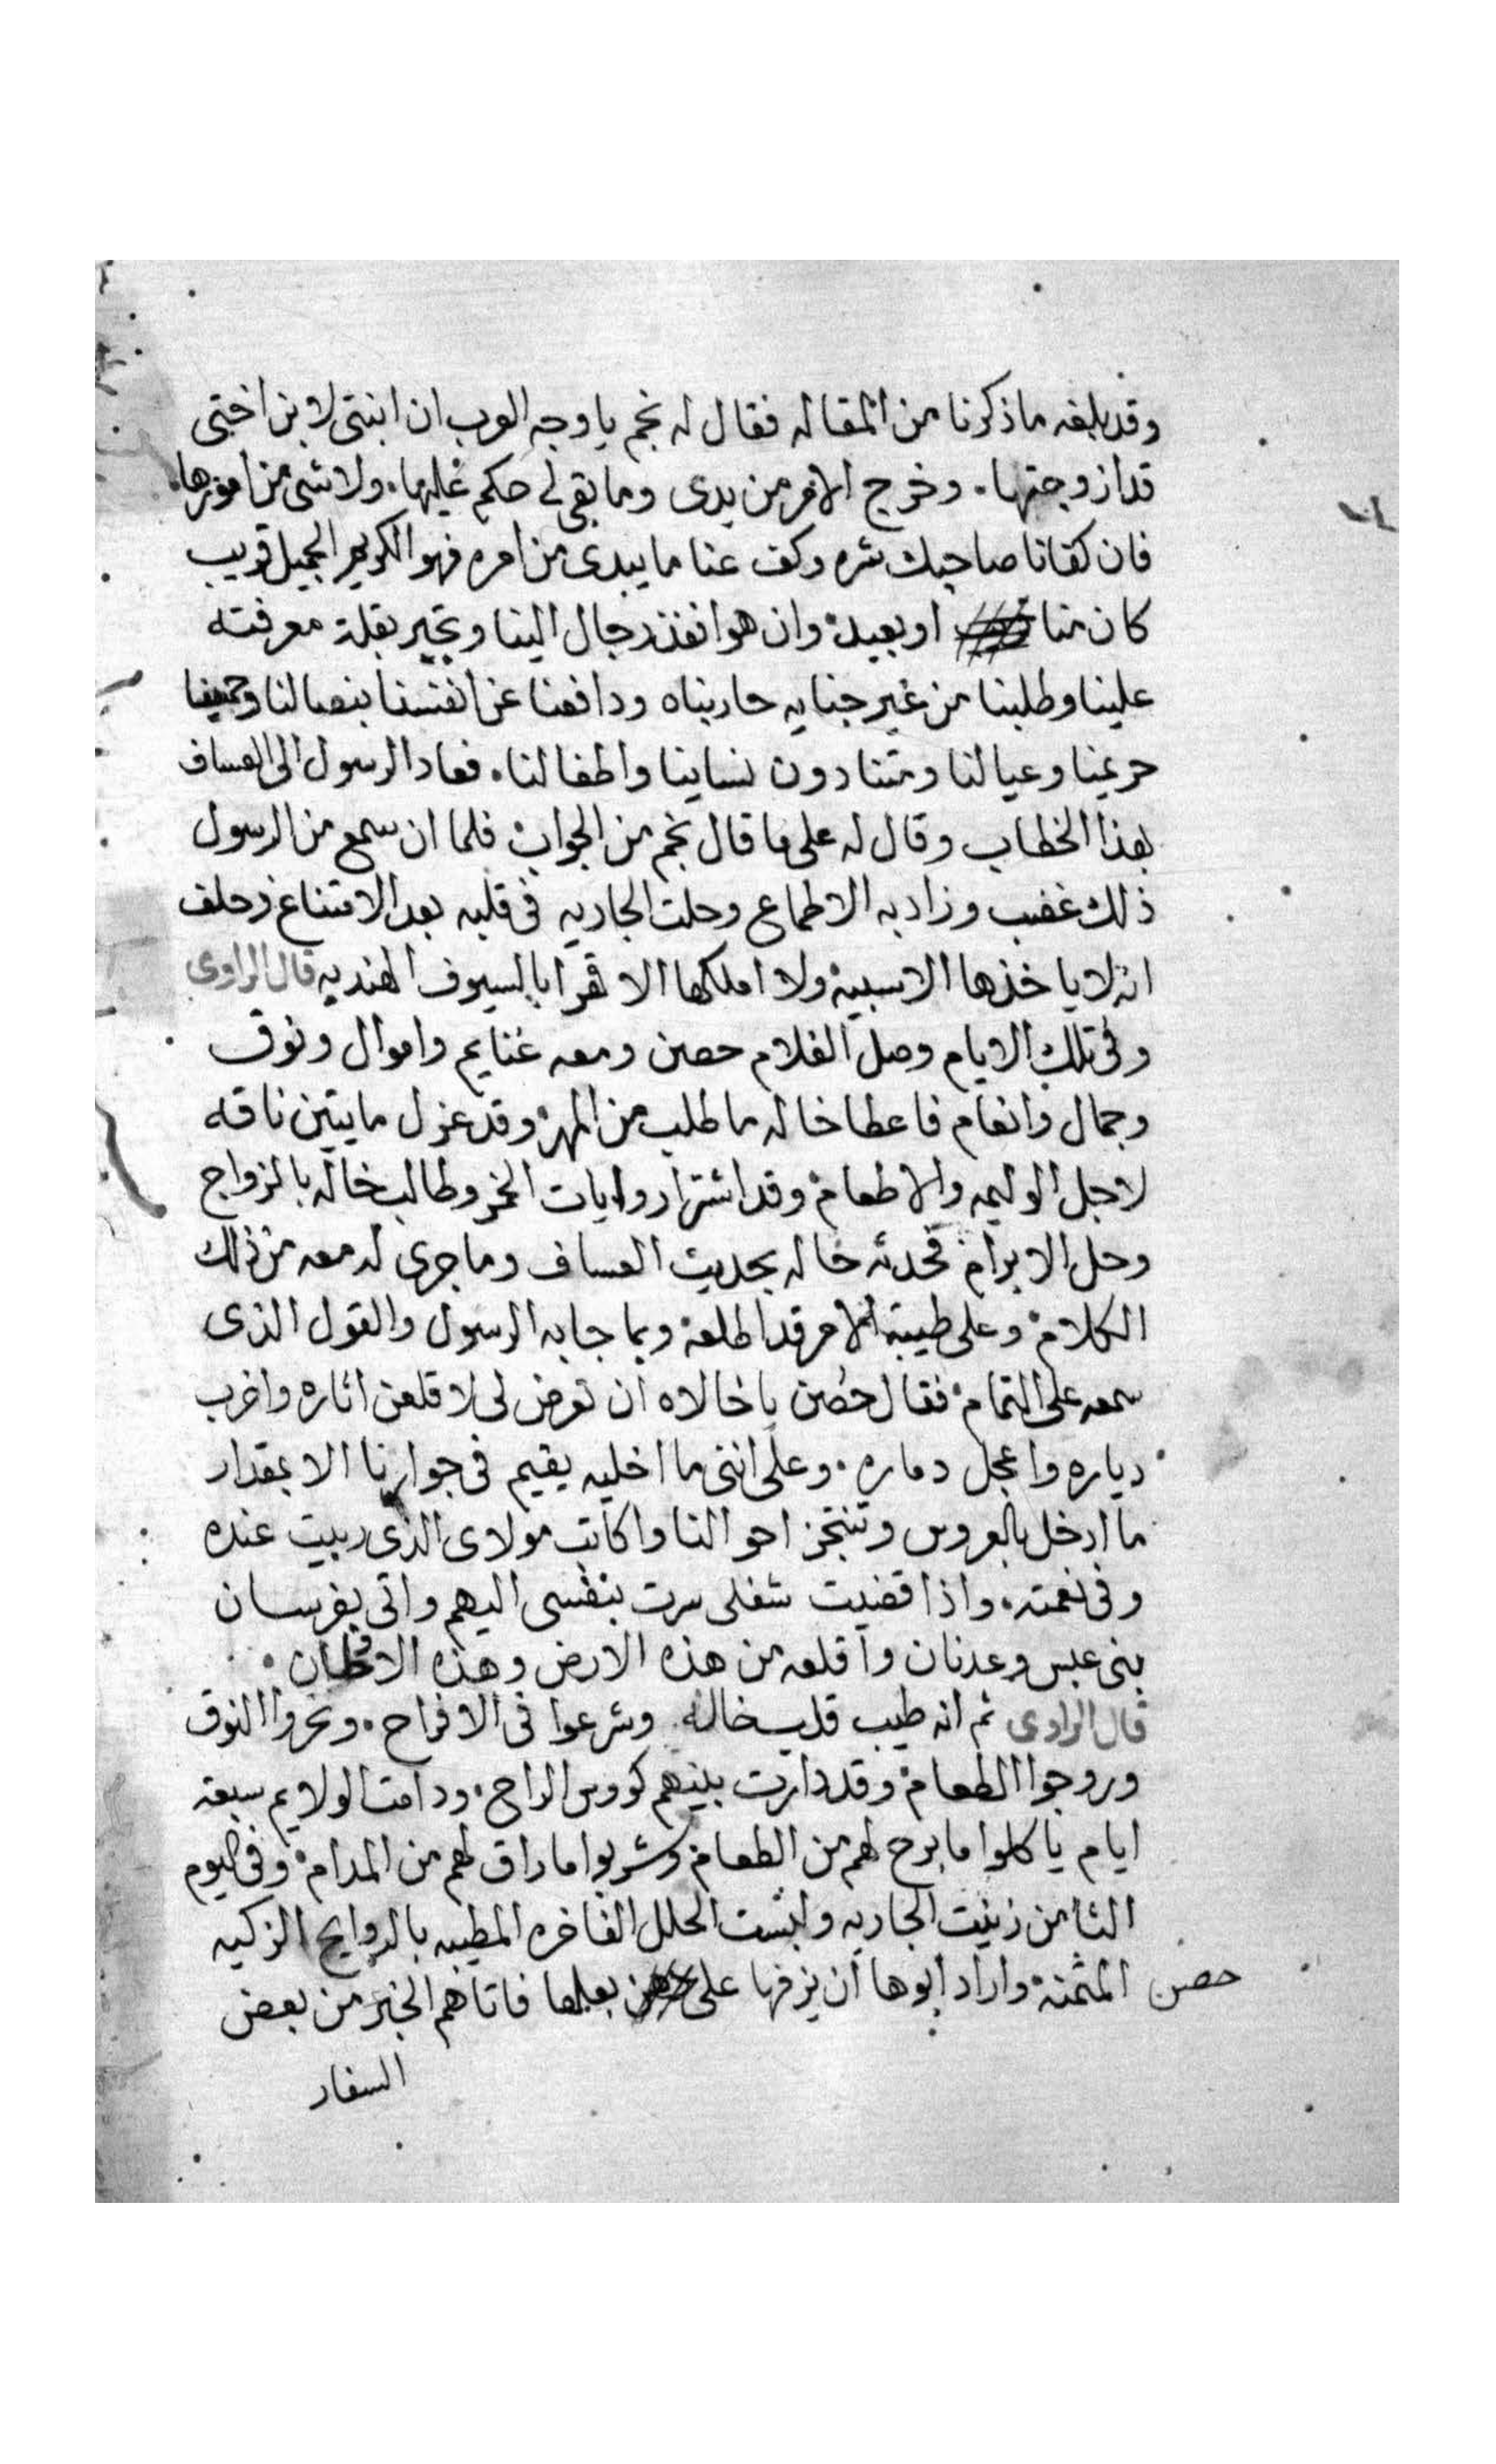 وقد بلغه ما ذكرنا من المقاله فقال له نجم يا وجه العرب ان ابنتى لابن اختى
قد ازوجتها. وخرج الامر من يدى وما بقى لى حكم عليها. ولا شى من امورها.
فان كفانا صاحبك شره وكف عنا ما يبدى من امره فهو الكريم الجميل قريب
كان منا او بعيد وان هو انفذ رجال الينا وتجبر بقلة معرفته
علينا وطلبنا من غير جنايه حاربناه ودافعنا عن انفسنا بنصالنا وحمينا
حريمنا وعيالنا ومتنا دون نساينا واطفالنا. فعاد الرسول الى العساف
بهذا الخطاب وقال له على ما قال نجم من الجواب فلما ان سمع من الرسول
ذلك غضب وزاد به الاطماع وحلت الجاريه فى قلبه بعد الامتناع وحلف
انه لا ياخذها الا سبيه ولا املكها الا قهرا بالسيوف الهنديه قال الراوى
وفى تلك الايام وصل الغلام حصن ومعه غنايم واموال ونوق
وجمال وانعام فاعطا خاله ما طلب من المهر وقد عزل مايتين ناقه
لاجل الوليمه والاطعام وقد اشترا روايات الخمر وطالب خاله بالزواج
وحل الابرام فحدثه خاله بحديث العساف وما جرى له معه من ذلك
الكلام وعلى طيبة الامر قد اطلعه وبما جابه الرسول والقول الذى
سمعه على التمام فقال حصن يا خالاه ان تعرض لى لا قلعن اثاره واخرب
دياره واعجل دماره. وعلى اننى ما اخليه يقيم فى جوارنا الا بمقدار
ما ادخل بالعروس وتنتجز احوالنا واكاتب مولاى الذى ربيت عنده
وفى نعمته. واذا قضيت شغلى سرت بنفسى اليهم واتى بفرسان
بنى عبس وعدنان واقلعه من هذه الارض وهذه الاوطان.
قال الراوى ثم انه طيب قلب خاله وشرعوا فى الافراح. ونحروا النوق
وروجوا الطعام وقد دارت بينهم كووس الراح. ودامت الولايم سبعة
ايام ياكلوا ما برح لهم من الطعام وشربوا ما راق لهم من المدام وفى اليوم
الثامن زينت الجاريه ولبست الحلل الفاخره المطيبه بالروايح الزكيه
المثمنه واراد ابوها ان يزفها على حصن بعلها فاتاهم الخبر من بعض
السفار